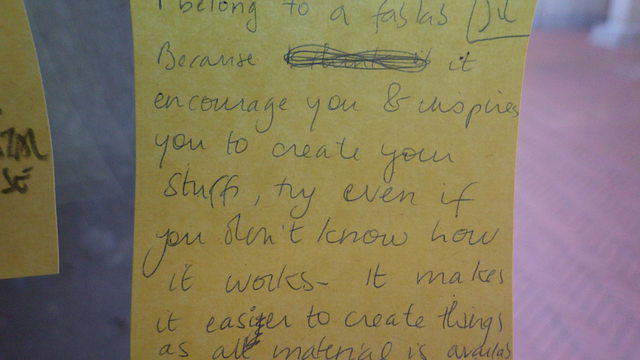 I belong to a fablab
Because it
encourage you & inspires
you to create your
stuffs, try even if
you don't know how
it works - It makes
it easier to create things
as all material is availab